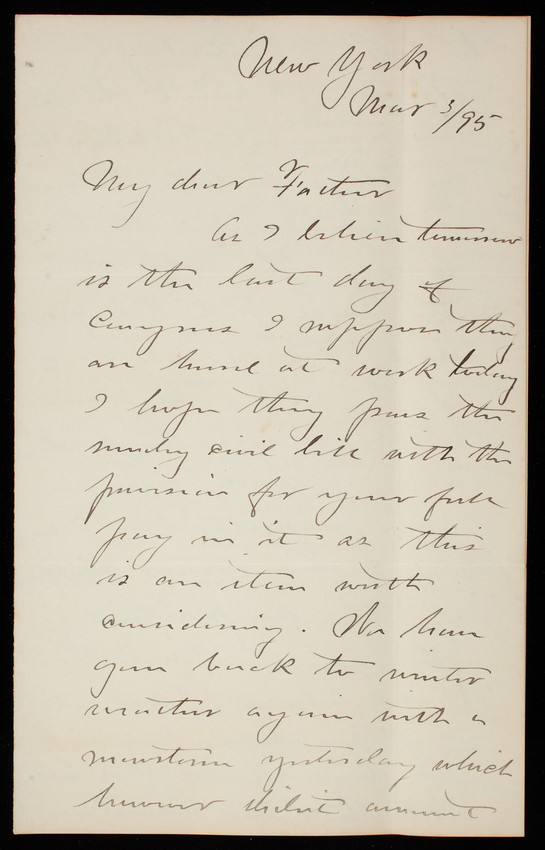 New York
Mar 3/95
My dear Father
As I believe tomorrow
is the last day of
Congress I suppose they
are hard at work today
I hope they pass the
sundry civil bill with the
provision for your full
pay in it as this
is an item worth
considering. We have
gone back to winter
weather again with a
snowstorm yesterday which
however didn't amount